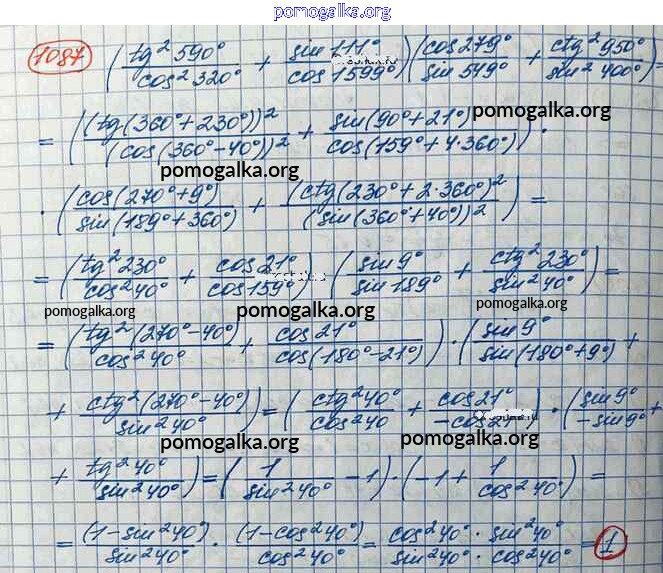 pomogalka.org
1087 (tg²590°/cos²320° + sin111°/cos1599°)(cos279°/sin549° + ctg²950°/sin²400°) =
= ((tg(360°+230°))²/(cos(360°-40°))² + sin(90°+21°)/cos(159°+4·360°)) ·
pomogalka.org
pomogalka.org
· (cos(270°+9°)/sin(189°+360°) + (ctg(230°+2·360°)²/(sin(360°+40°))²) =
= (tg²230°/cos²40° + cos21°/cos159°) · (sin9°/sin189° + ctg²230°/sin²40°) =
pomogalka.org pomogalka.org pomogalka.org
= (tg²(270°-40°)/cos²40° + cos21°/cos(180°-21°)) · (sin9°/sin(180°+9°) +
+ ctg²(270°-40°)/sin²40°) = (ctg²40°/cos²40 + cos21°/-cos21°) · (sin9°/-sin9° +
pomogalka.org pomogalka.org
+ tg²40°/sin²40°) = (1/sin²40° - 1) · (-1 + 1/cos²40°) =
= (1-sin²40°)/sin²40° · (1-cos²40°)/cos²40° = cos²40° · sin²40°/sin²40° · cos²40° = 1